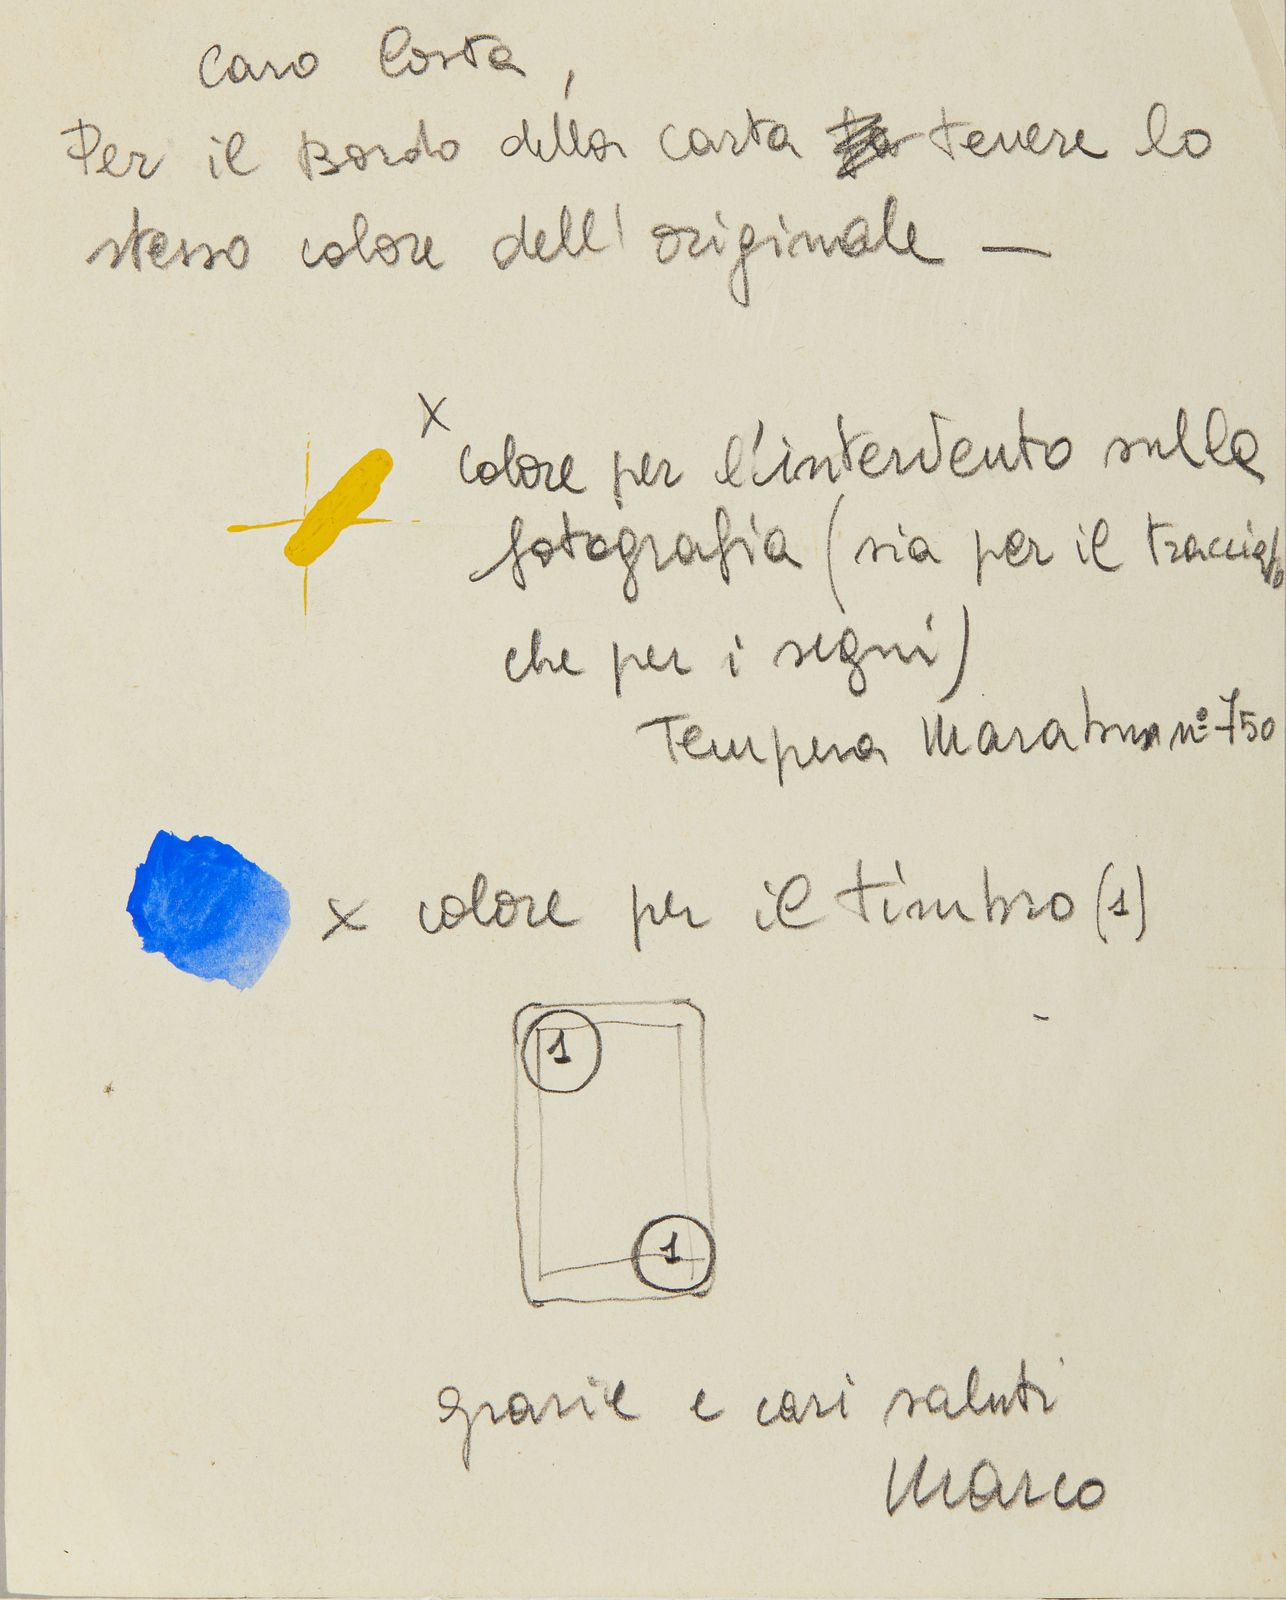 Caro Costa,
Per il Bordo della carta tenere lo
stesso colore dell'originale —
x colore per l'intervento sulla
fotografia (sia per il tracciato
che per i segni)
Tempera Marabu n° 750
x colore per il timbro (1)
1
1
grazie e cari saluti
Marco